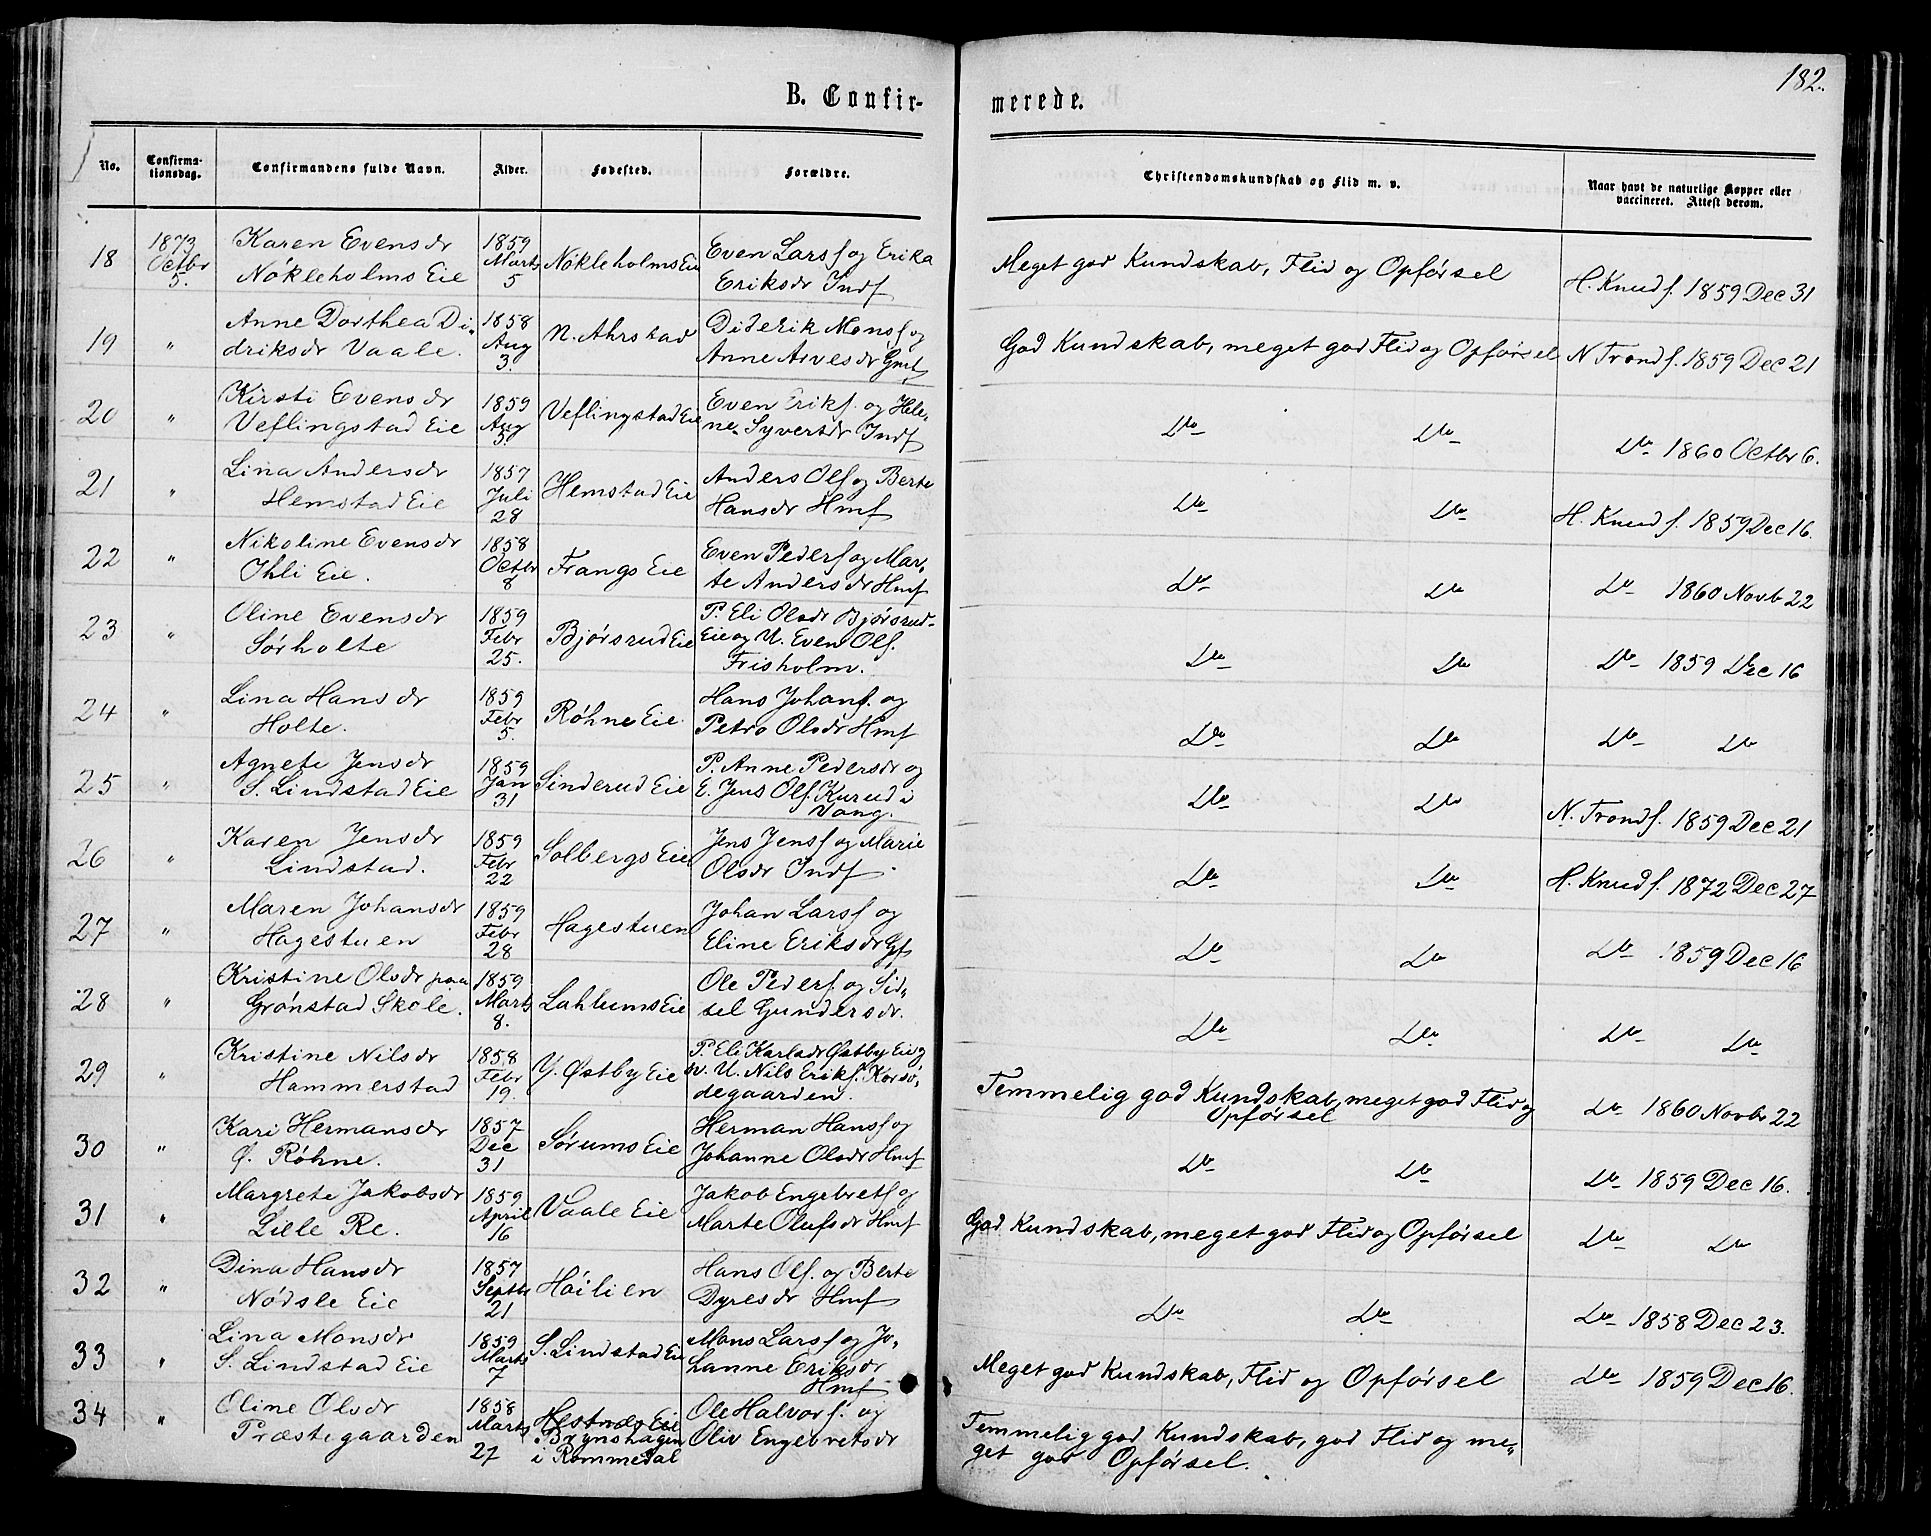 182.
B. Confir-
merede.
No.
Confirma-
tionsdag.
Confirmandens fulde Navn.
Alder.
Fødested.
Forældre.
Christendomskundskab og Flid m. v.
Naar havt de naturlige Kopper eller
vaccineret. Attest derom.
18 1873 Octbr 5. Karen Evensdr Nøkleholms Eie 1859 Marts 5 Nøkleholms Eie Even Larsf og Erika Eriksdr Indf Meget god Kundskab, Flid og Opførsel H. Knudf. 1859 Dec 31
19 " Anne Dorthea Di- driksdr Vaale. 1858 Aug 3. N. Ahrstad Diderik Monsf og Anne Arvesdr Gmf God Kundskab, meget god Flid og Opførsel N Trondf. 1859 Dec 21
20 " Kirsti Evensdr Veflingstad Eie 1859 Aug 3. Veflingstad Eie Even Erikf. og Hele- ne Syvertdr Indf Do Do Do 1860 Octbr 6.
21 " Lina Andersdr Hemstad Eie 1857 Juli 28 Hemstad Eie Anders Olf og Berte Hansdr Hmf Do Do H. Knudf. 1859 Dec 16.
22 " Nikoline Evensdr Ihli Eie. 1858 Octbr 8 Frangs Eie Even Pedersf og Mar- te Andersdr Hmf Do Do Do 1860 Novb 22
23 " Oline Evensdr Sørholte 1859 Febr 25. Bjørsrud Eie P. Eli Olsdr Bjørsrud- Eie og U. Even Olf. Frisholm. Do Do Do 1859 Dec 16
24 " Lina Hansdr Holte. 1859 Febr 5. Røhne Eie Hans Johanf. og Petro Olsdr Hmf Do Do Do Do
25 " Agnete Jensdr S. Lindstad Eie 1859 Jan 31 Sinderud Eie P. Anne Pedersdr og E. Jens Olf. Kurud i Vang. Do Do N. Trondf. 1859 Dec 21
26 " Karen Jensdr Lindstad. 1859 Febr 22 Solbergs Eie Jens Jensf og Marie Olsdr Indf Do Do H. Knudf. 1872 Dec 27
27 " Maren Johansdr Hagestuen 1859 Febr 28 Hagestuen Johan Larsf og Eline Eriksdr Gf Do Do Do 1859 Dec 16
28 " Kristine Olsdr paa Grønstad Skole. 1859 Marts 8. Lahlums Eie Ole Pederf. og Sid- sel Gundersdr. Do Do Do Do
29 " Kristine Nilsdr Hammerstad 1858 Febr 19. Y. Østby Eie P. Eli Karlsdr Østby Eie og U. Nils Erikf. Korsø- degaarden. Temmelig god Kundskab, meget god Flid og Opførsel Do 1860 Novbr 22
30 " Kari Hermansdr Ø. Røhne. 1857 Dec 31 Sørums Eie Herman Hansf og Johanne Olsdr Hmf Do Do Do 1859 Dec 16.
31 " Margrete Jakobsdr Lille Re. 1859 April 16 Vaale Eie Jakob Engebretf og Marte Olufsdr Hmf God Kundskab, meget god Flid og Opførsel Do Do
32 " Dina Hansdr Nødsle Eie 1857 Septbr 21 Høilien Hans Olf. og Berte Dyresdr Hmf Do Do Do 1858 Dec 23.
33 " Lina Monsdr S. Lindstad Eie 1859 Marts 7 S. Lindstad Eie Mons Larsf og Jo- hanne Eriksdr Hmf Meget god Kundskab, Flid og Opførsel Do 1859 Dec 16.
34 " Oline Olsdr Præstegaarden 1858 Marts 27 Hestnes Eie i Rommedal Ole Halvorf. og Oliv Engebretsdr Temmelig god Kundskab, god Flid og me- get god Opførsel.